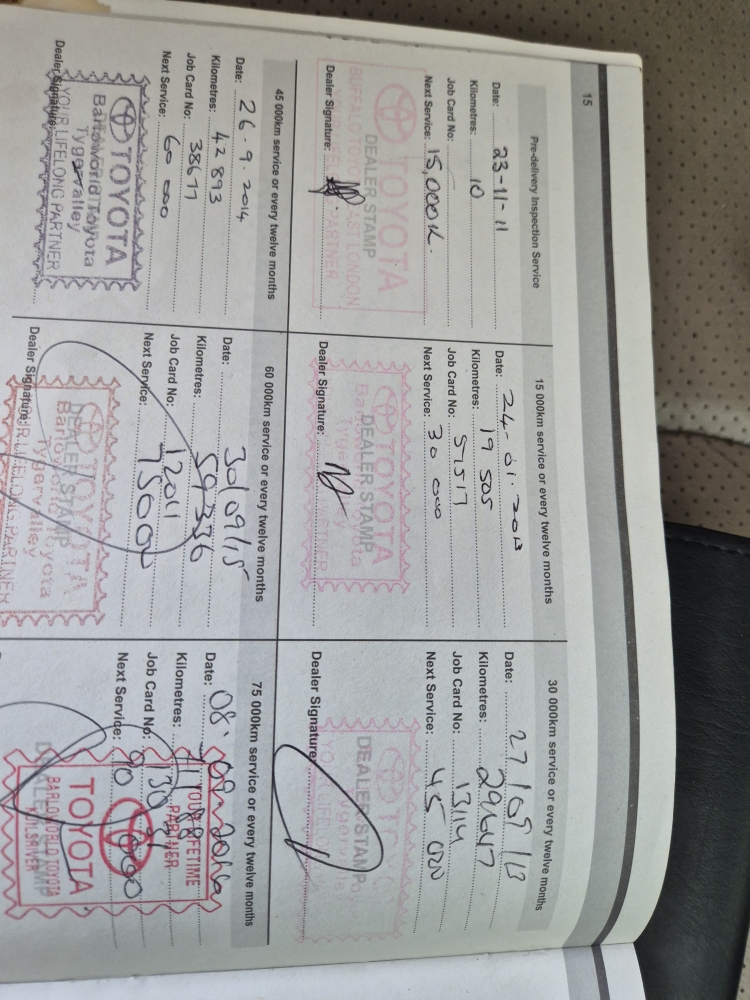 15
Pre-delivery Inspection Service
Date: 23-11-11
Kilometres: 10
Job Card No:
Next Service: 15,000K.
TOYOTA
DEALER STAMP
BUFFALO TOYOTA EAST LONDON
YOUR LIFELONG PARTNER
Dealer Signature:
15 000km service or every twelve months
Date: 24-01-2013
Kilometres: 19 505
Job Card No: 51517
Next Service: 30 000
TOYOTA
DEALER STAMP
Dealer Signature:
30 000km service or every twelve months
Date: 27/09/13
Kilometres: 29647
Job Card No: 13114
Next Service: 45 000
DEALER STAMP
Dealer Signature:
45 000km service or every twelve months
Date: 26.9.2014
Kilometres: 42893
Job Card No: 38677
Next Service: 60 000
TOYOTA
Barloworld Toyota
Tygervalley
YOUR LIFELONG PARTNER
Dealer Signature:
60 000km service or every twelve months
Date: 30/09/15
Kilometres: 59336
Job Card No: 12011
Next Service: 75000
TOYOTA
DEALER STAMP
Barloworld Toyota
Tygervalley
YOUR LIFELONG PARTNER
Dealer Signature:
75 000km service or every twelve months
Date: 08.09.2016
Kilometres:
Job Card No:
Next Service: 90 000
YOUR LIFETIME
PARTNER
TOYOTA
BARLOWORLD TOYOTA
DEALER STAMP